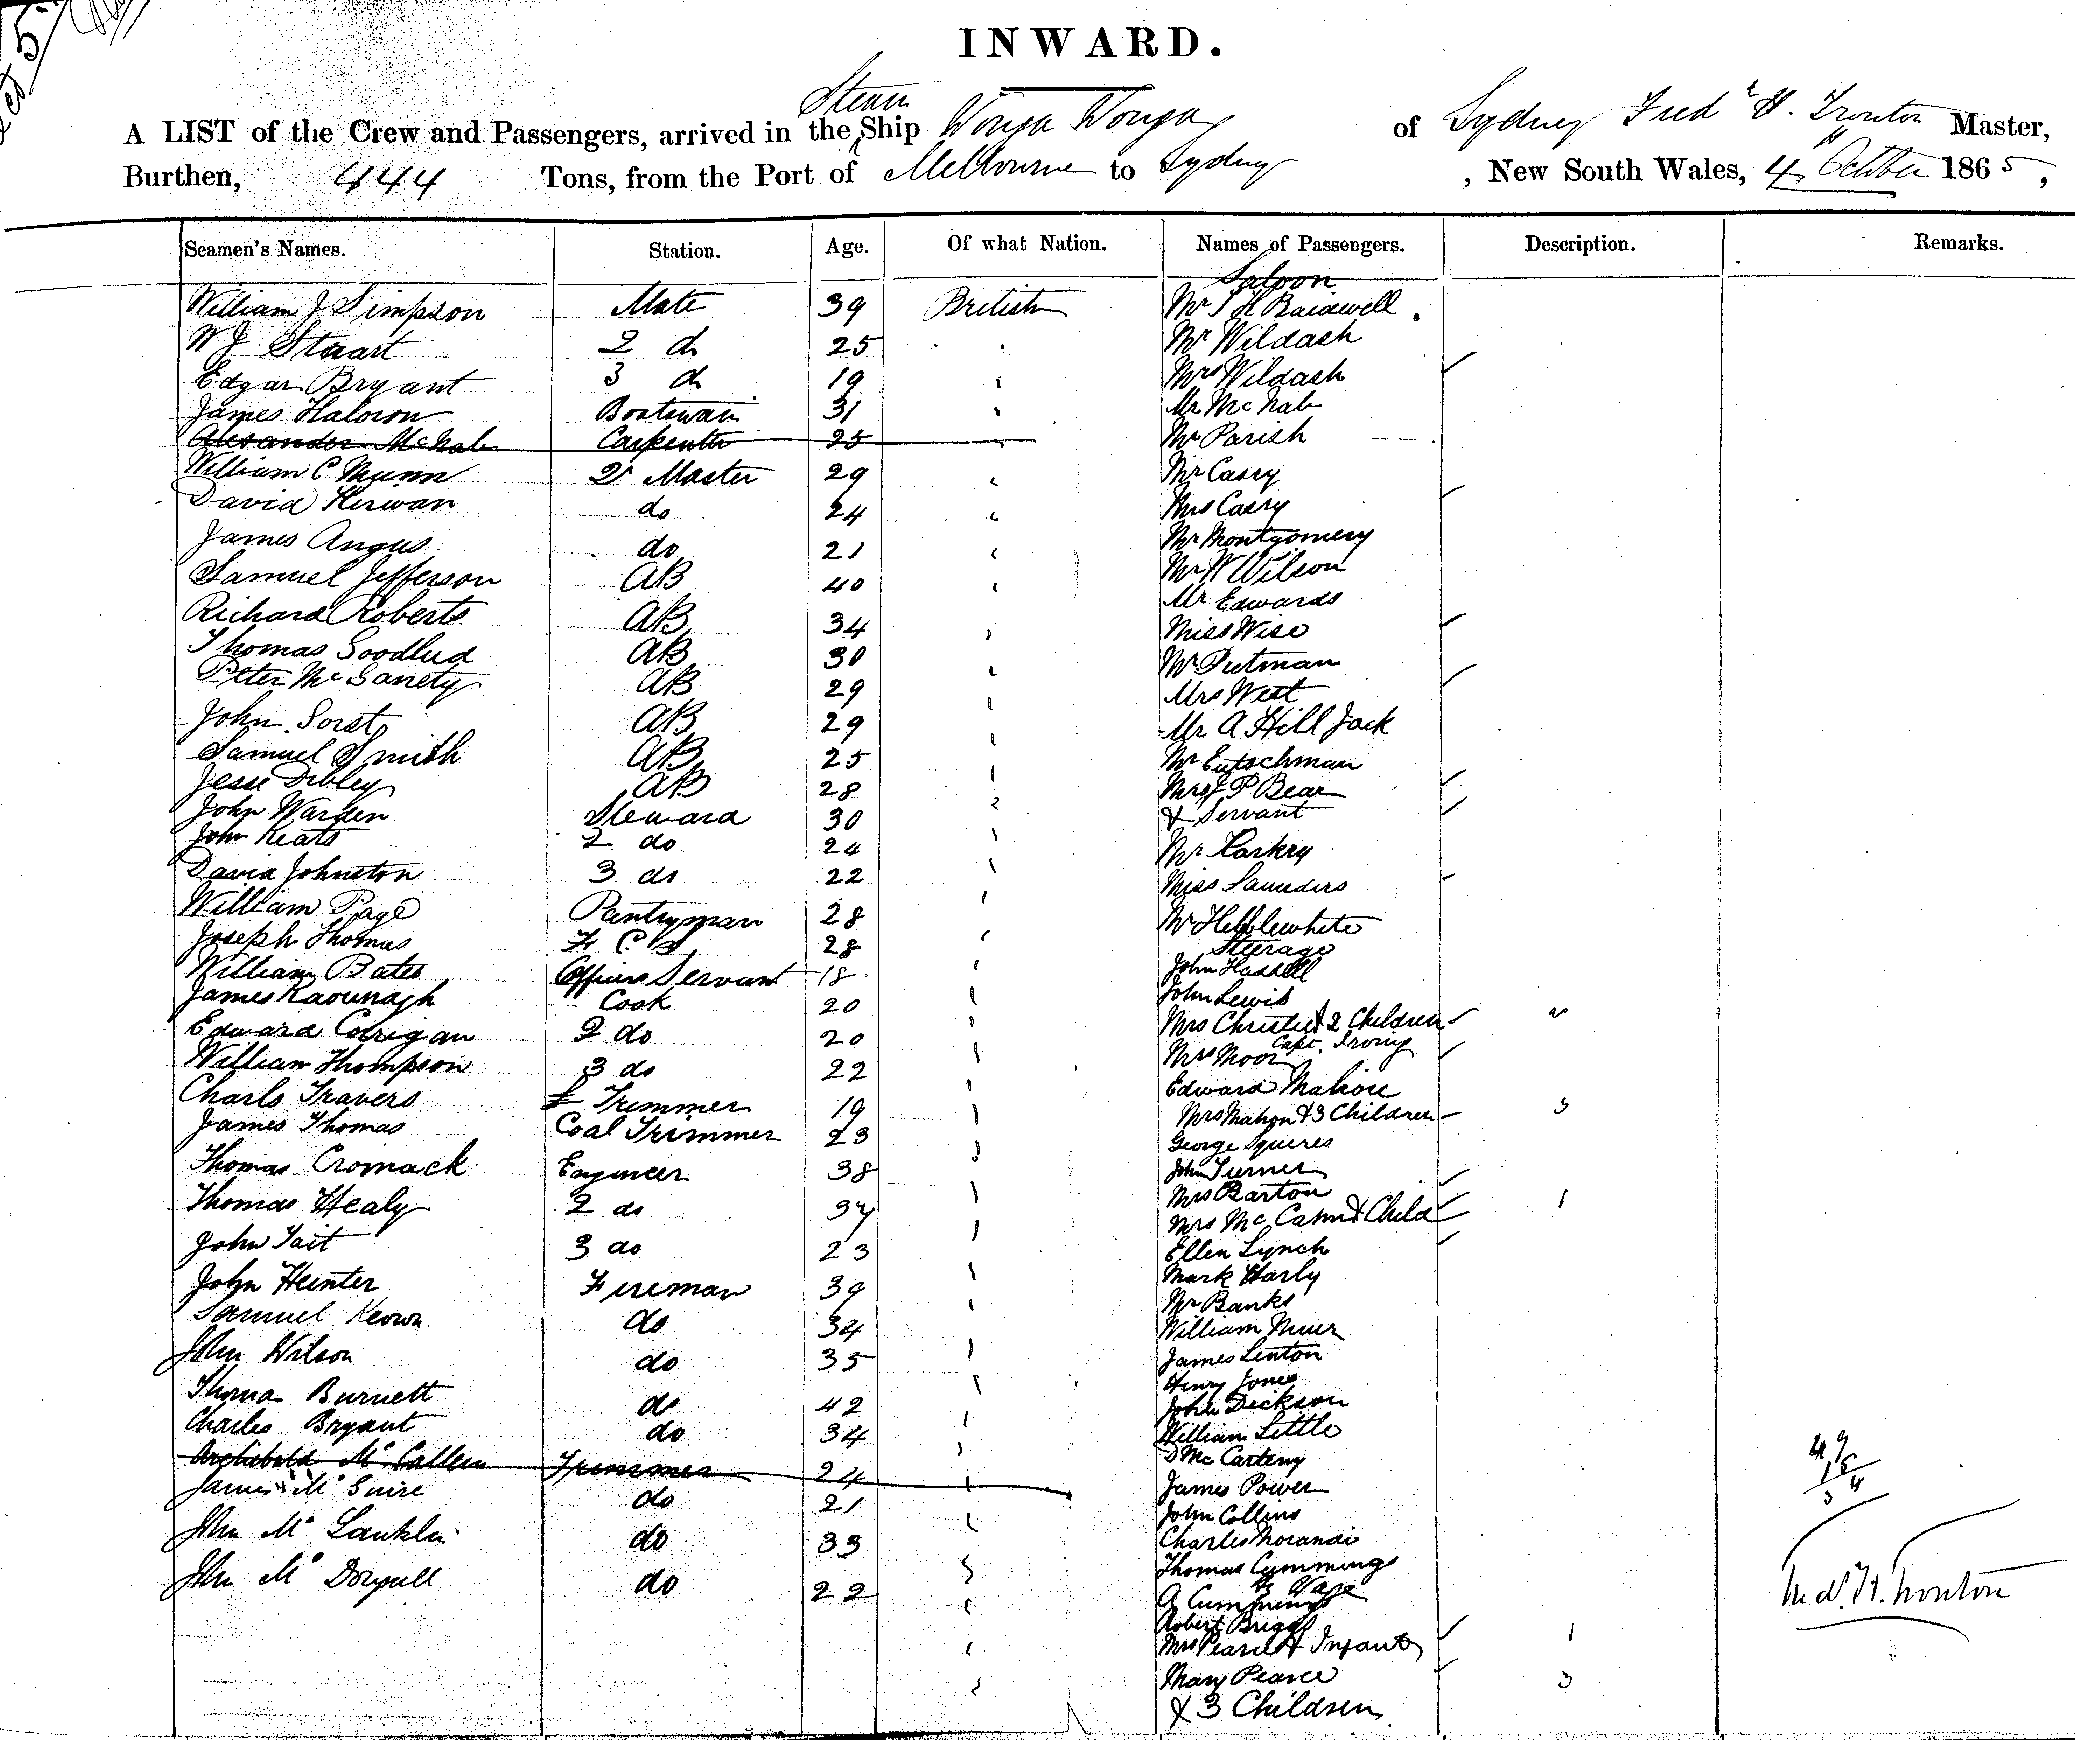 INWARD.
A LIST of the Crew and Passengers, arrived in the Steam Ship Wonga Wonga of Sydney Fredk H. Trouton Master,
Burthen, 444 Tons, from the Port of Melbourne to Sydney, New South Wales, 4 October 1865,
Seamen's Names. Station. Age. Of what Nation. Names of Passengers. Description. Remarks.
Saloon
William J Simpson Mate 39 British Mr J H Bardwell
W J Stuart 2 do 25 Mr Wildash
Edgar Bryant 3 do 19 Mrs Wildash
James Halcron Boatswain 31 Mr McNab
Alexander McNab Carpenter 25 Mr Parish
William C Munn Qr Master 29 Mr Casey
David Kirwan do 24 Mrs Casey
James Angus do 21 Mr Montgomery
Samuel Jefferson AB 40 Mr W Wilson
Richard Roberts AB 34 Mr Edwards
Thomas AB 30 Miss Wise
Peter Mc AB 29 Mr Putman
John AB 29 Mrs West
Samuel Smith AB 25 Mr A Hill Jack
Jesse Dibley AB 28 Mr
John Warden Steward 30 Mrs J P Bear
John Keats 2 do 24 & Servant
David Johnston 3 do 22 Mr Harkry
William Page Pantryman 28 Miss Saunders
Joseph Thomas F C S 28 Mr Hebblewhite
Steerage
William Bates Officers Servant 18 John Hassell
James Kavunagh Cook 20 John Lewis
Edward Corrigan 2 do 20 Mrs Christie & 2 Children 2
Capt. Irving
William Thompson 3 do 22 Mrs Moor
Charls Travers F Trimmer 19 Edward Mahon
James Thomas Coal Trimmer 23 Mrs Mahon & 3 Children 3
George Squires
Thomas Cromack Engineer 38 John Turner
Mrs Barton
Thomas Healy 2 do 37 Mrs Mc Cann & Child 1
John Tait 3 do 23 Ellen Lynch
Mark Harly
John Hunter Fireman 39 Mr Banks
Samuel Keown do 34 William Muir
John Wilson do 35 James Lenton
Henry Jones
Thomas Burnett do 42 John Dickson
Charles Bryant do 34 William Little
Archibald McCallum Trimmer 24 D McCarteny
James McGuire do 21 James Power
John Collins
John McLauklin do 33 Charles Morandi
Thomas Cummings
John McDougall do 22 A Cummings
Robert Briggs
Mrs Pearce & Infant 1
Mary Pearce 3
& 3 Children
Fredk H. Trouton